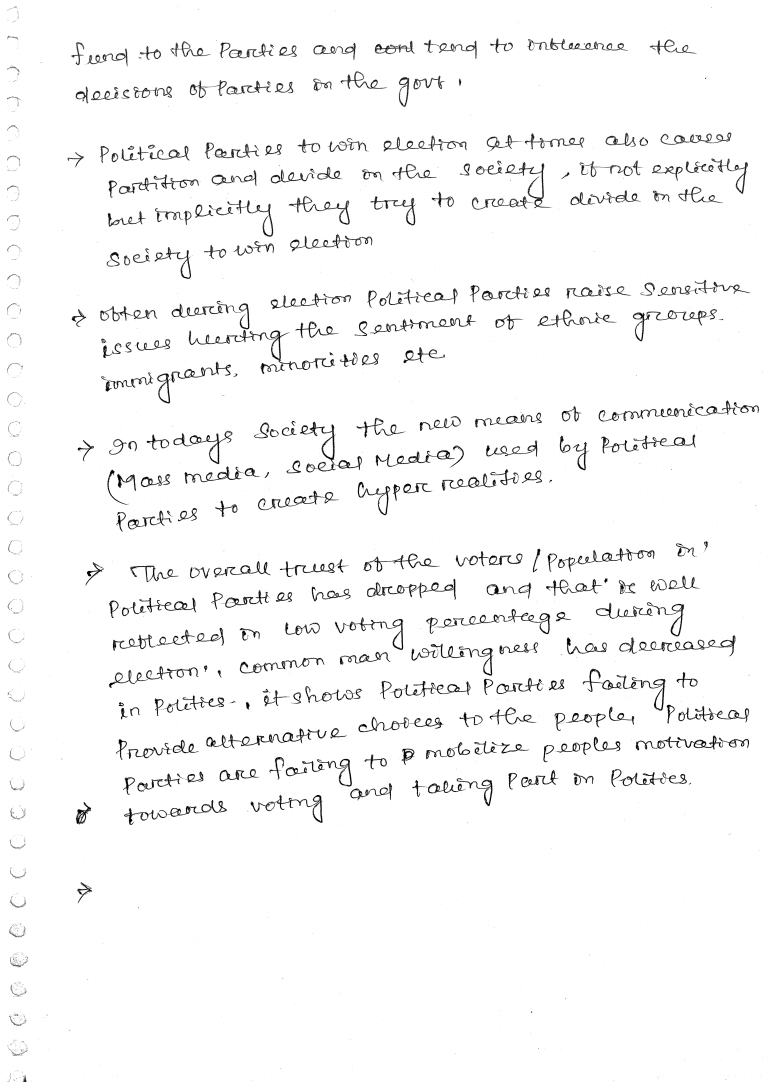 fund to the Parties and cont tend to influence the
decisions of Parties in the govt.
→ Political Parties to win election at times also causes
Partition and devide in the society, if not explicitly
but implicitly they try to create divide in the
society to win election
→ often during election Political Parties raise sensitive
issues hurting the sentiment of ethnic groups.
immigrants, minorities etc
→ In todays society the new means of communication
(Mass media, social Media) used by Political
Parties to create hyper realities.
→ The overall trust of the voters / Population in'
Political Parties has dropped and that' is well
reflected in low voting percentage during
election', common man willingness has decreased
in Politics-, it shows Political Parties failing to
Provide alternative choices to the people, Political
Parties are failing to P mobilize peoples motivation
towards voting and taking Part in Politics.
→